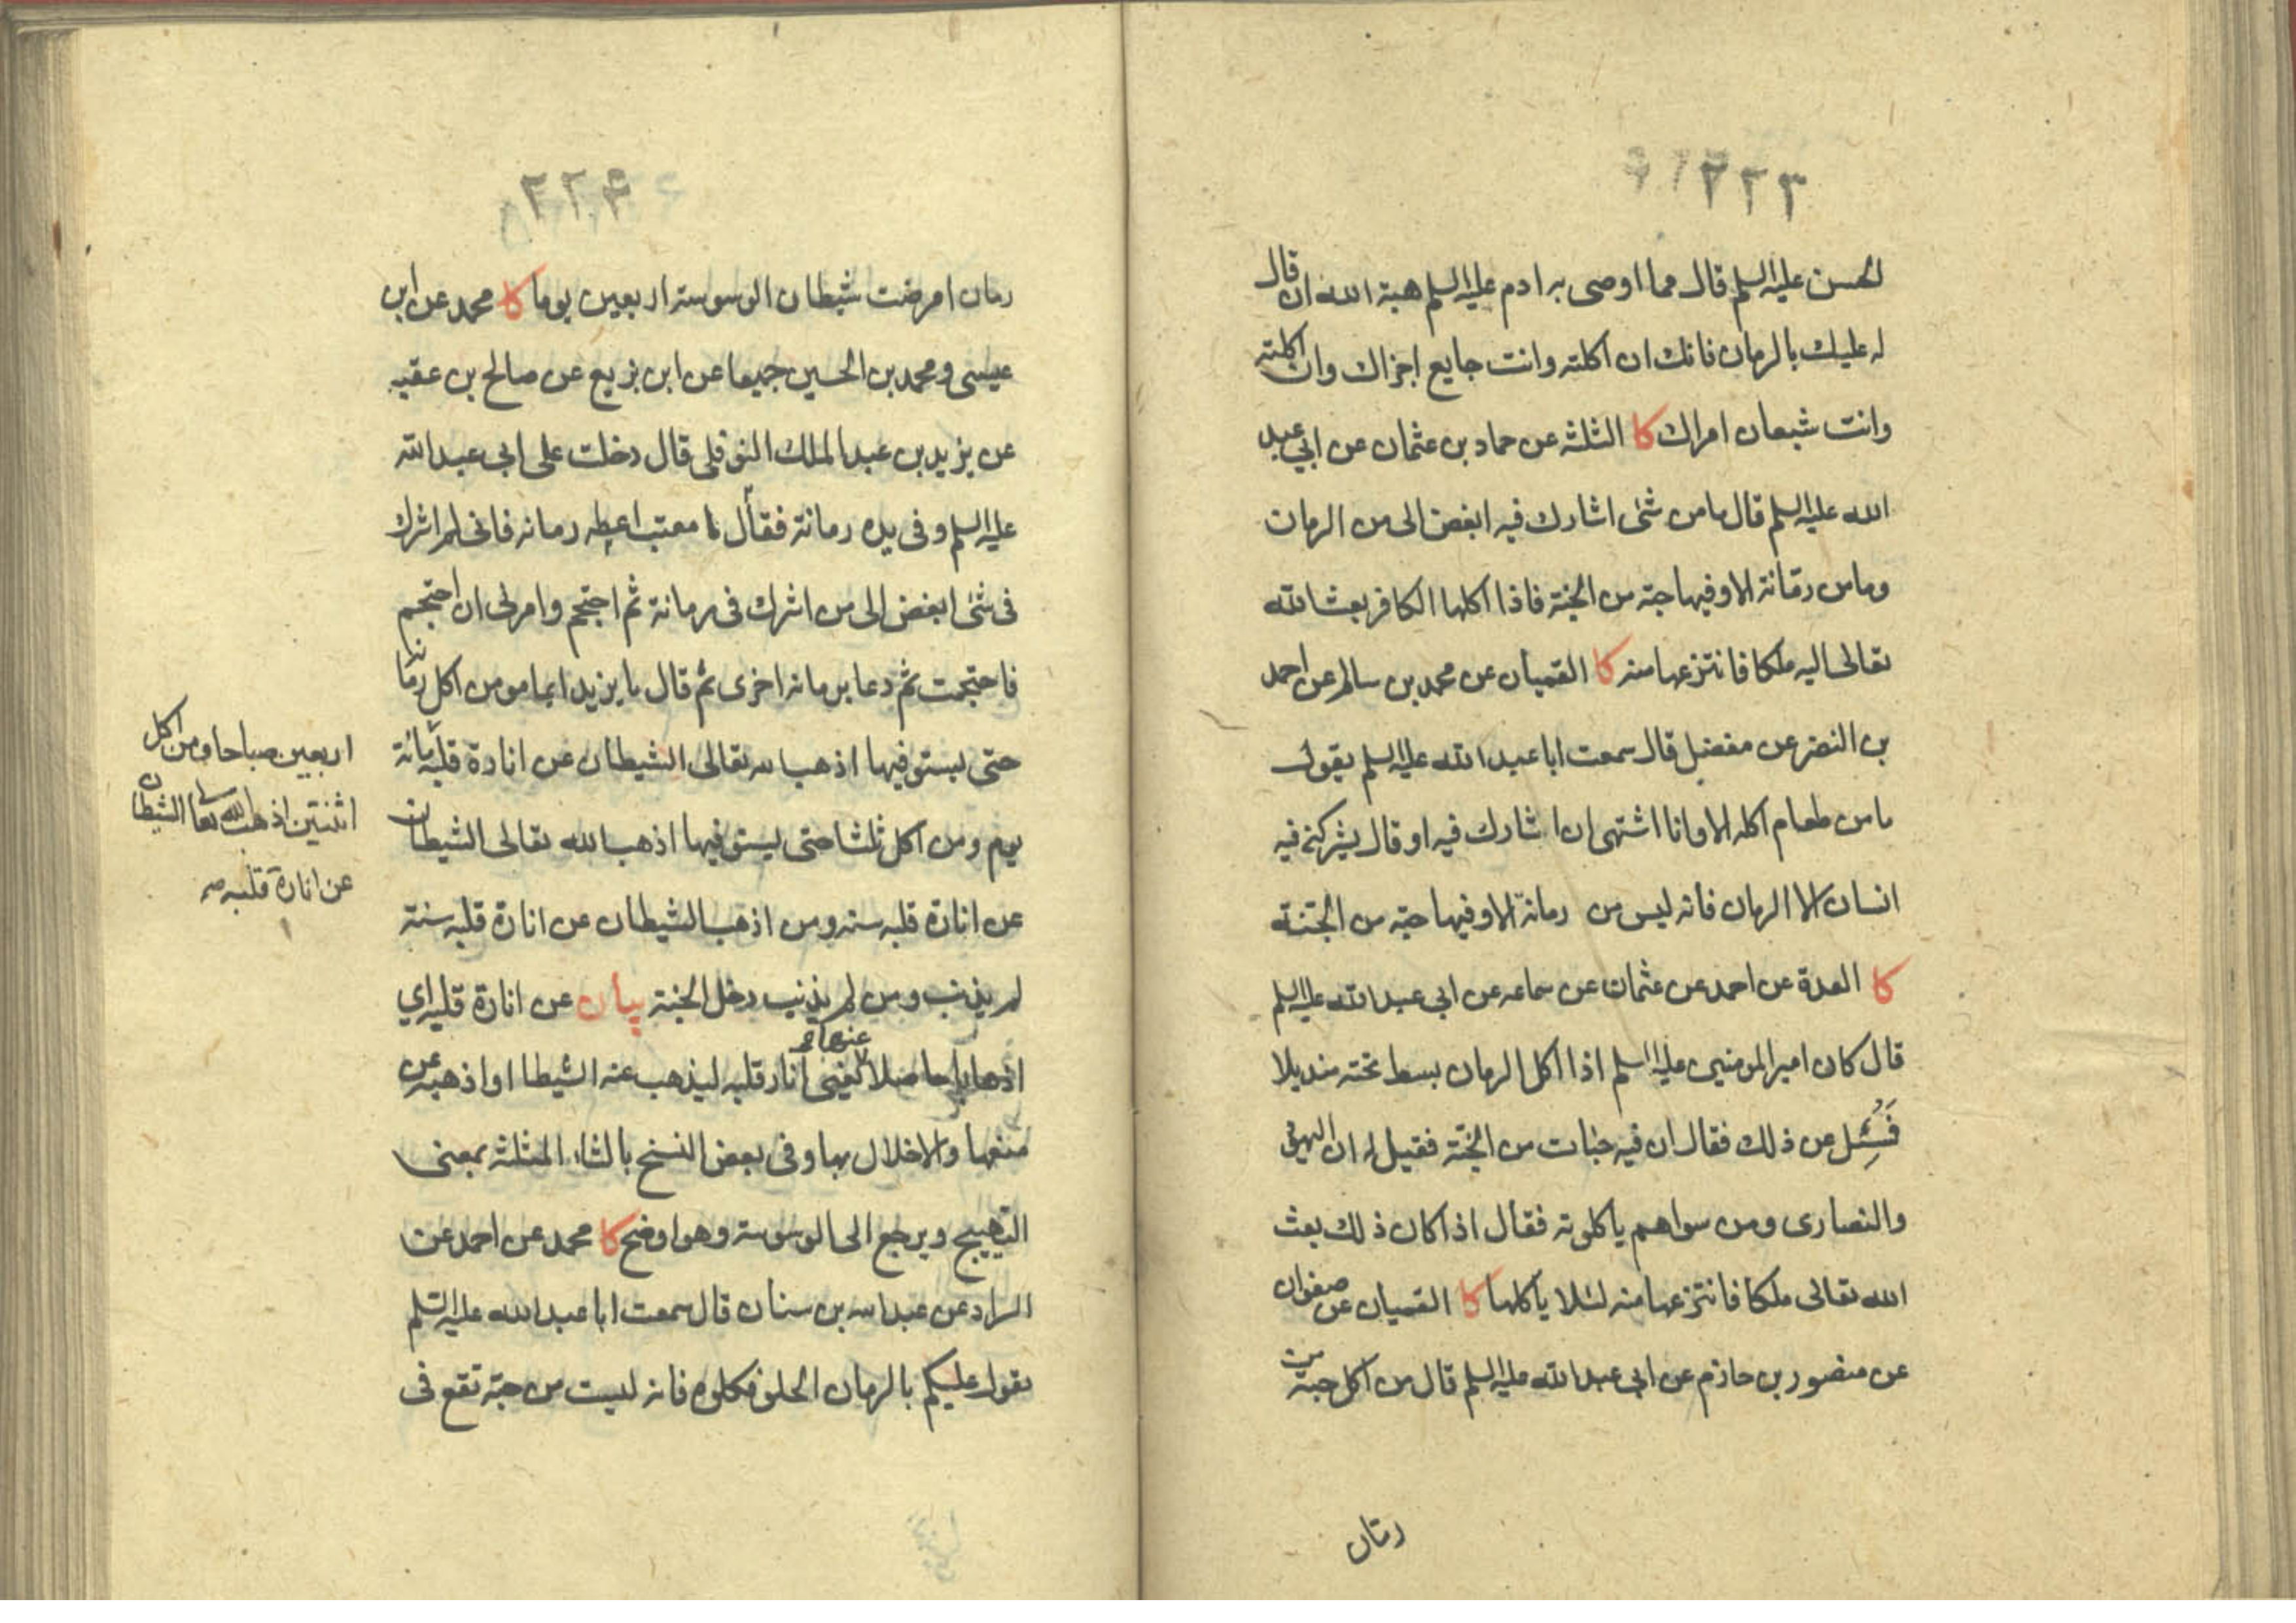 ۲۲۳
لحسن عليه السلم قال مما اوصى به ادم عليه السلم هبة الله ان قال
له عليك بالرمان فانك ان اكلته وانت جايع اجزاك وان اكلته
وانت شبعان امراك كا الثلثة عن حماد بن عثمان عن ابي عبد
الله عليه السلم قال ما من شئ اشارك فيه ابغض الى من الرمان
وما من رمّانة الا وفيها حبة من الجنة فاذا اكلها الكافر بعث الله
تعالى اليه ملكا فانتزعها منه كا القميان عن محمد بن سالم عن احمد
بن النضر عن مفضل قال سمعت ابا عبد الله عليه السلم يقول
ما من طعام اكله الا وانا اشتهى ان اشارك فيه او قال يشركنى فيه
انسان الا الرمان فانه ليس من رمانة الا وفيها حبة من الجنة
كا العدة عن احمد عن عثمان عن سماعه عن ابي عبد الله عليه السلم
قال كان امير المومنين عليه السلم اذا اكل الرمان بسط تحته منديلا
فَسُئِل عن ذلك فقال ان فيه حبات من الجنّة فقيل له ان اليهود
والنصارى ومن سواهم ياكلونه فقال اذا كان ذلك بعث
الله تعالى ملكا فانتزعها منه لئلا ياكلها كا القميان عن صفوان
عن منصور بن حازم عن ابي عبد الله عليه السلم قال من اكل حبة من
رمّان
۲۲۴
رمان امرضت شيطان الوسوسة اربعين يوما كا محمد عن ابن
عيسى ومحمد بن الحسين جميعا عن ابن بزيع عن صالح بن عقبه
عن يزيد بن عبد الملك النوفلى قال دخلت على ابي عبد الله
عليه السلم وفى يده رمانة فقال يا معتب اعطه رمانه فانى لم اشرك
فى شئ ابغض الى من اشرك فى رمانة ثم احتجم وامرنى ان احتجم
فاحتجمت ثم دعا برمانه اخرى ثم قال يا يزيد ايما مومن اكل رمانة
حتى يستوفيها اذهب الله تعالى الشيطان عن انارة قلبه مائة
يوم ومن اكل ثلثا حتى يستوفيها اذهب الله تعالى الشيطان
عن انارة قلبه سنه ومن اذهب الشيطان عن انارة قلبه سنة
لم يذنب ومن لم يذنب دخل الجنة بيان عن انارة قلبه اي
اذهابا حاصلا يعنى انار قلبه ليذهب عنه الشيطا او اذهبه عن
منعها والاخلال بها وفى بعض النسخ بالثاء المثلثة بمعنى
التهييج ويرجع الى الوسوسة وهو اوضح كا محمد عن احمد عن
السراد عن عبد الله بن سنان قال سمعت ابا عبد الله عليه السلم
يقول عليكم بالرمان الحلو فكلوه فانه ليست من حبة تقع فى
اربعين صباحا ومن اكل
اثنتين اذهب الله تعا الشيطان
عن انارة قلبه